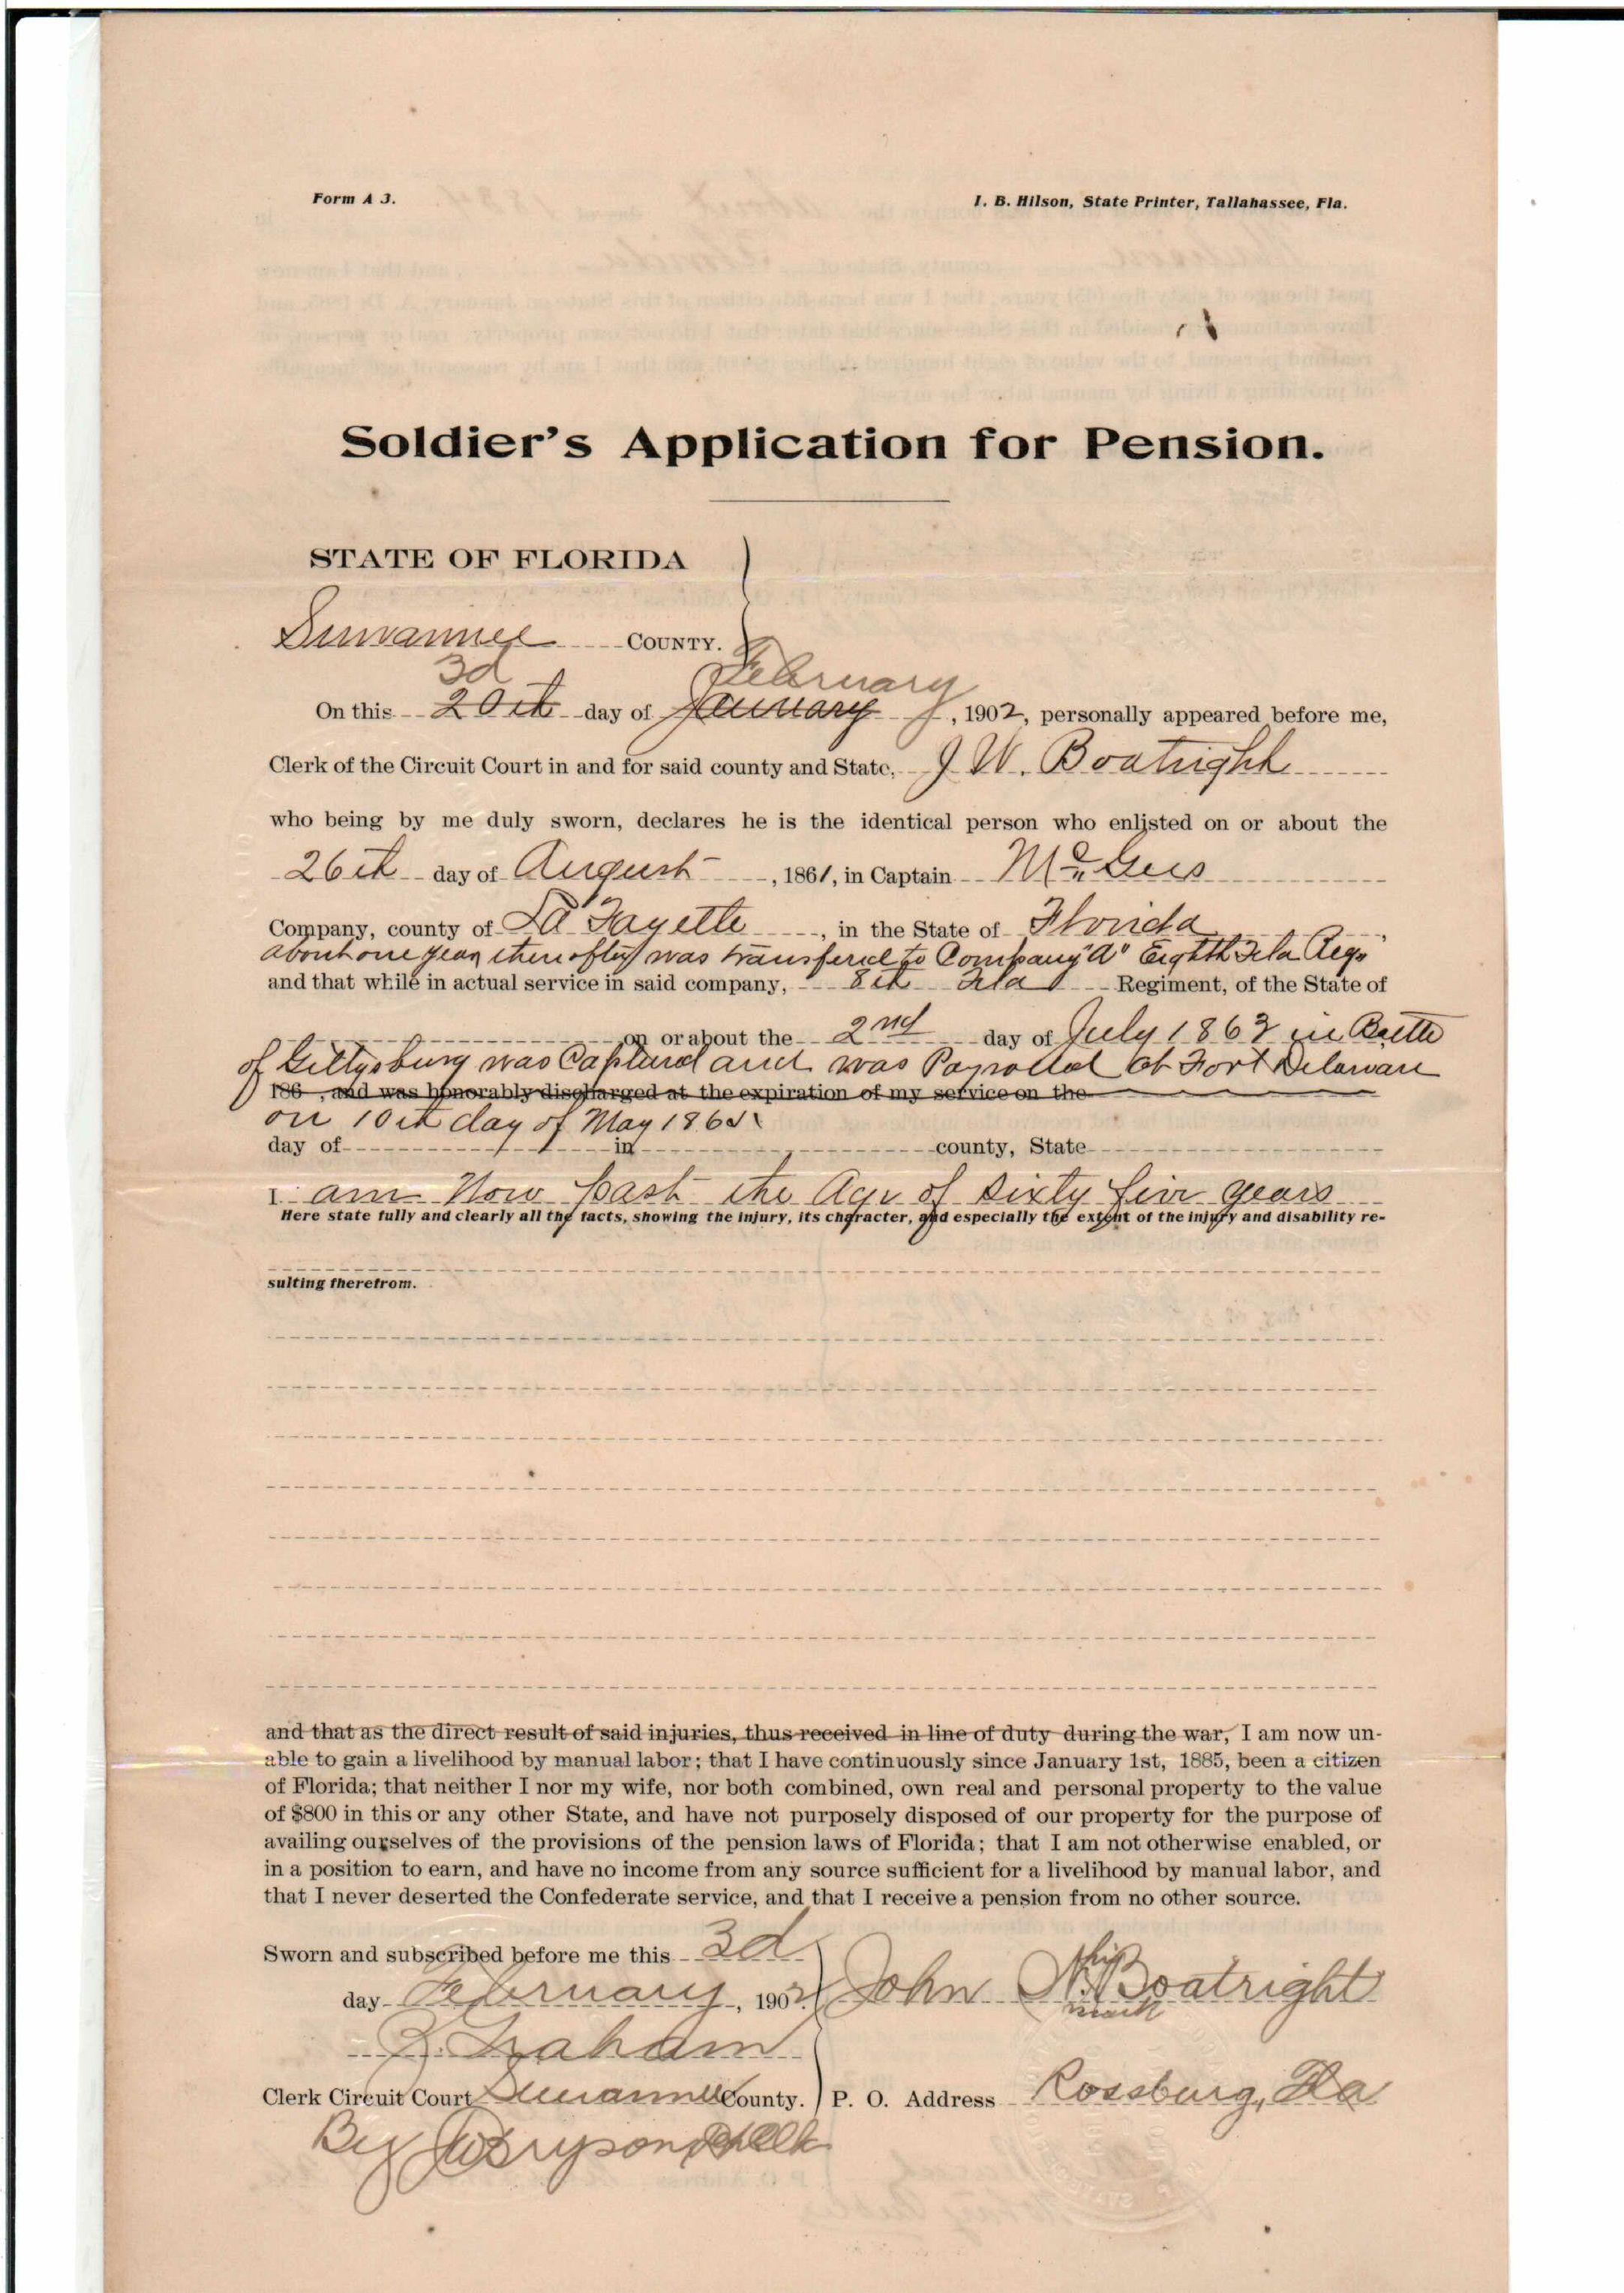 Form A 3.
I. B. Hilson, State Printer, Tallahassee, Fla.
Soldier's Application for Pension.
STATE OF FLORIDA
Suwannee COUNTY.
3d February
On this 20th day of January, 1902, personally appeared before me,
Clerk of the Circuit Court in and for said county and State, J. W. Boatright
who being by me duly sworn, declares he is the identical person who enlisted on or about the
26th day of August, 1861, in Captain
Company, county of La Fayette, in the State of Florida
about one year thereafter was transfered to Company "A" Eighth Fla Reg.
and that while in actual service in said company, 8th Fla Regiment, of the State of
on or about the 2nd day of July 1863 in Battle
of Gettysburg was Captured and was Parrolled at Fort Delaware
186 , and was honorably discharged at the expiration of my service on the
on 10th day of May 1865
day of in county, State
I am Now past the Age of sixty five years
Here state fully and clearly all the facts, showing the injury, its character, and especially the extent of the injury and disability re-
sulting therefrom.
and that as the direct result of said injuries, thus received in line of duty during the war, I am now un-
able to gain a livelihood by manual labor; that I have continuously since January 1st, 1885, been a citizen
of Florida; that neither I nor my wife, nor both combined, own real and personal property to the value
of $800 in this or any other State, and have not purposely disposed of our property for the purpose of
availing ourselves of the provisions of the pension laws of Florida; that I am not otherwise enabled, or
in a position to earn, and have no income from any source sufficient for a livelihood by manual labor, and
that I never deserted the Confederate service, and that I receive a pension from no other source.
Sworn and subscribed before me this 3d
his
day February, 1902 John W. Boatright
mark
Graham
Clerk Circuit Court Suwannee County. P. O. Address Rossburg, Fla
By Bryson